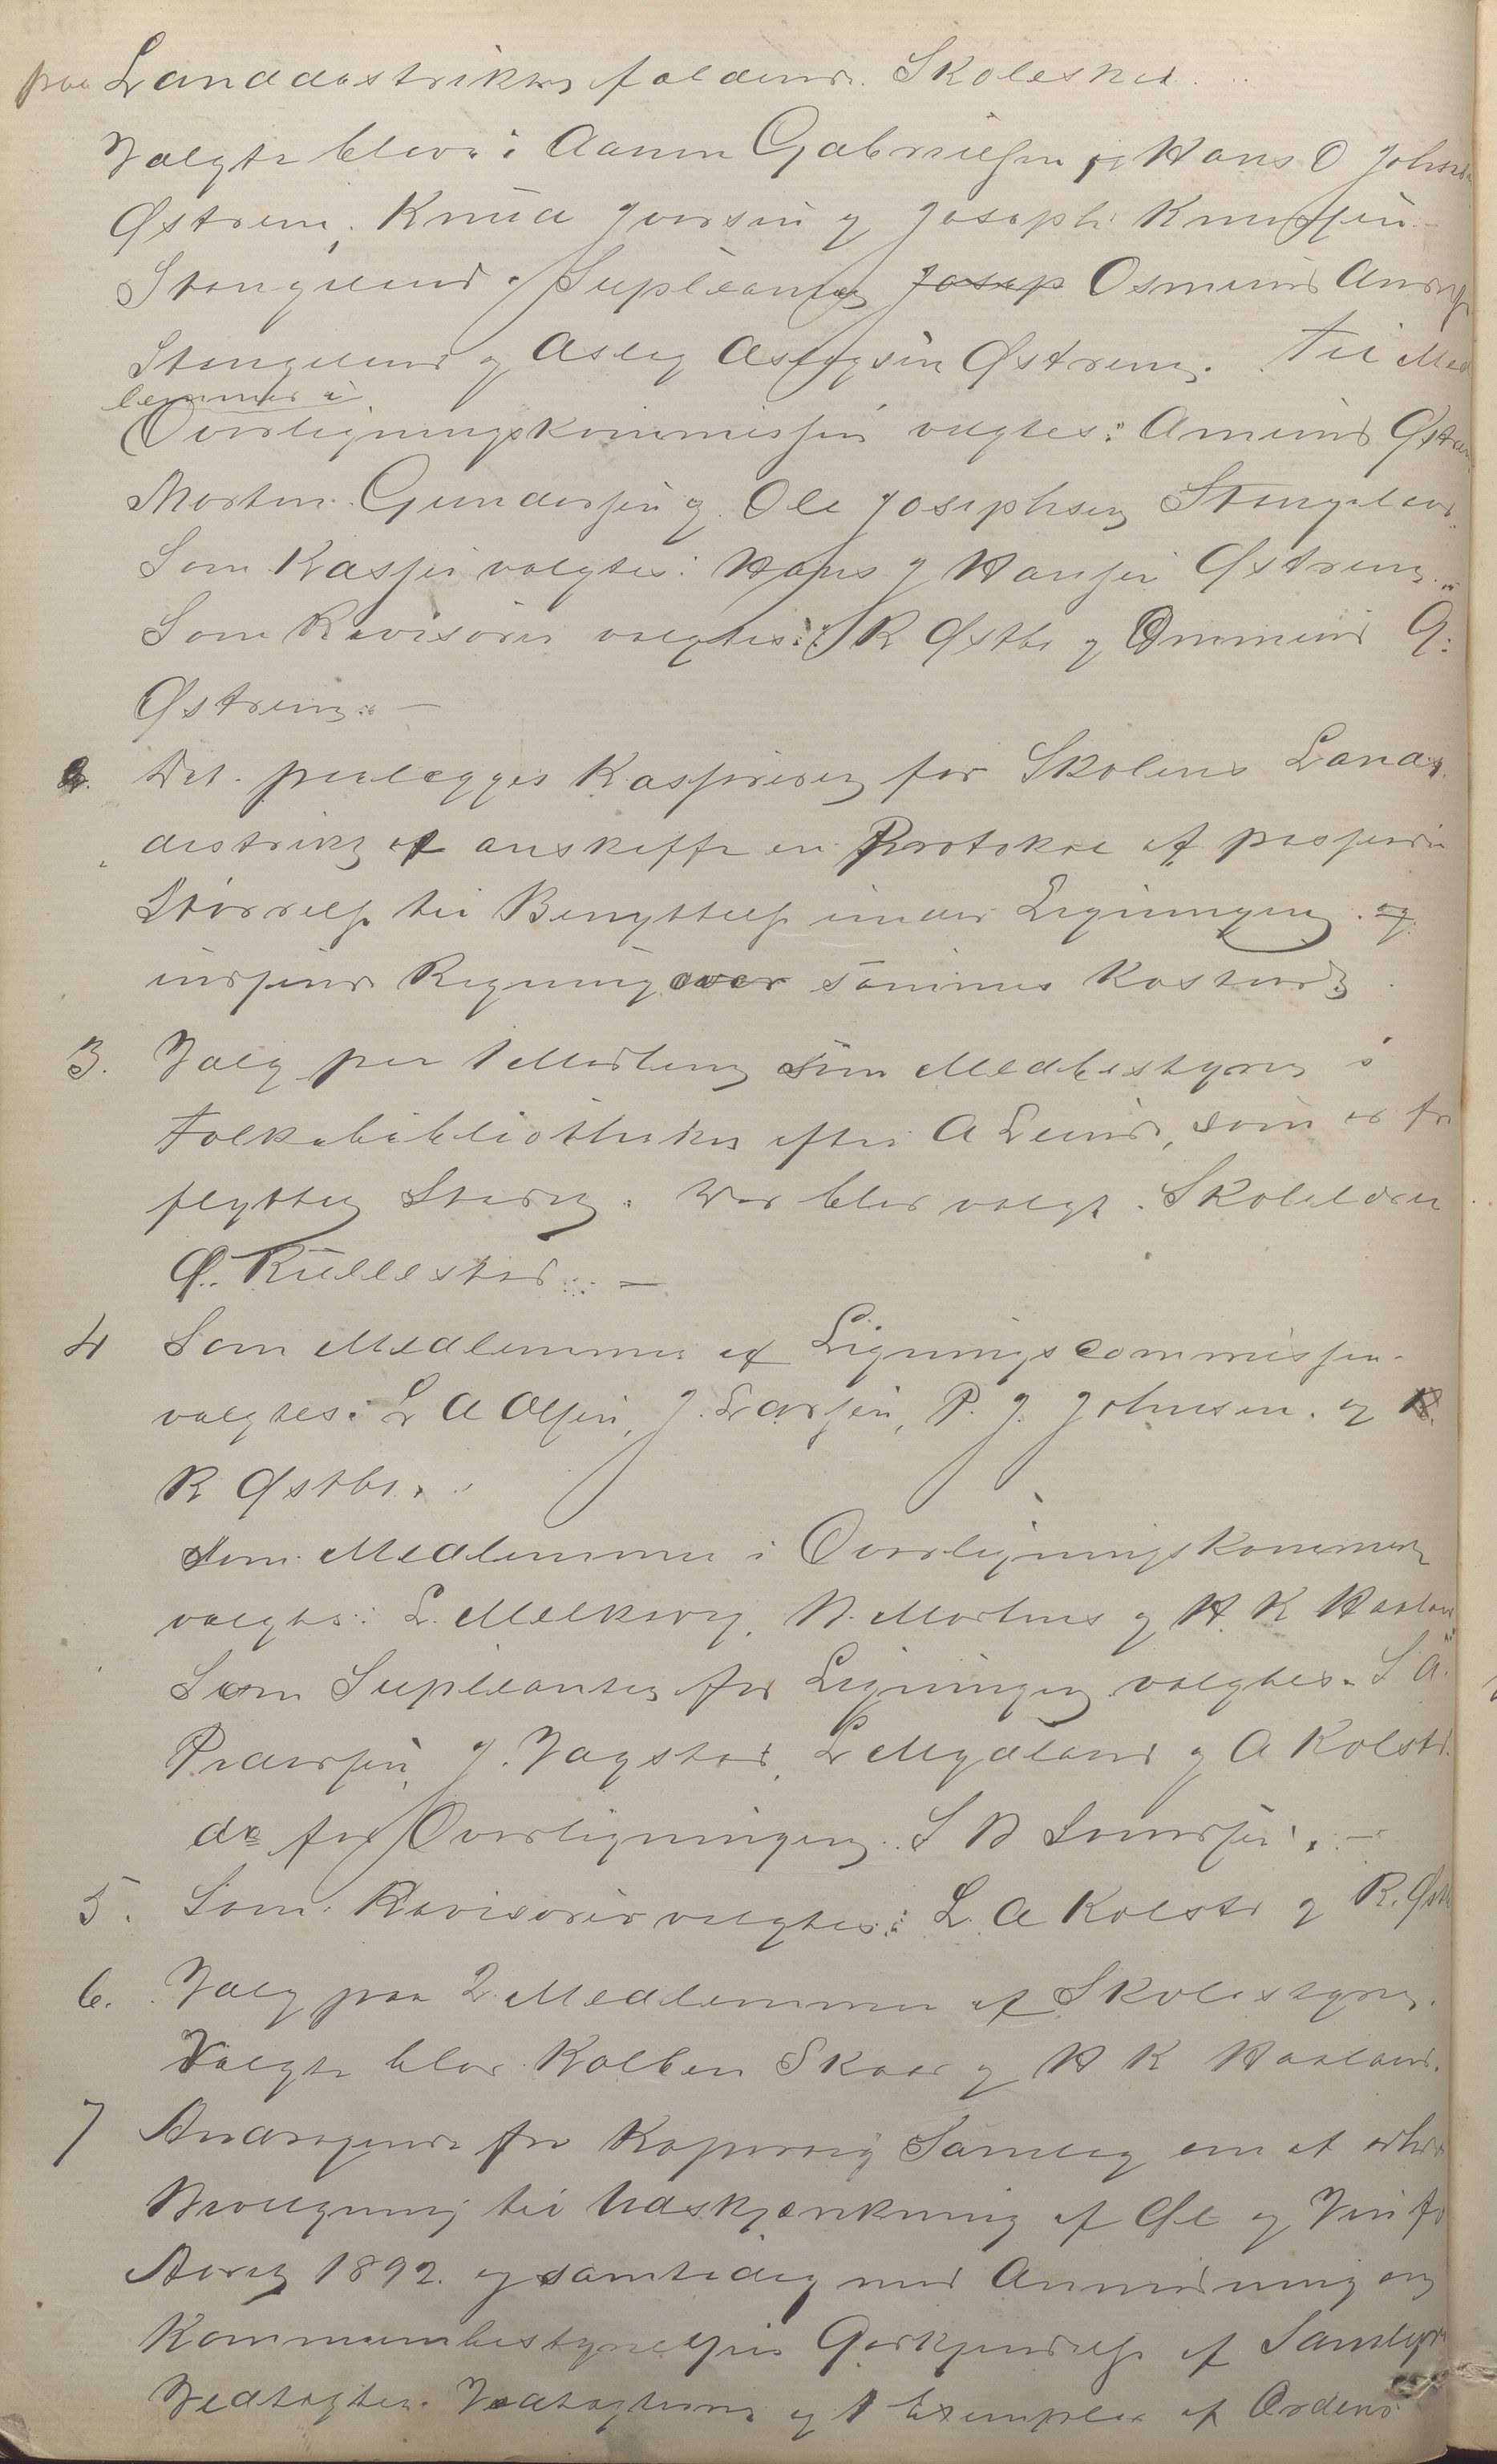 paa Landdistriktet faldende Skoleskat.
Valgte bleve: Aanen Gabrielsen og Hans O Johns
Østrem, Knud Iversen og Joseph Knudsen
Stangeland, Supleanter Josep Osmund
Stangeland og Aslag Aslagsen Østrem. Til Med
lemmer i
Overligningskommissen valgtes: Amund Østrem
Morten Gundersen og Ole Josephsen Stangeland.
Som Kasser valgtes: Hans J Hansen Østrem.
Som Revisorer valgtes: R Østbø og Ommund G.
Østrem.
2. Det paalægges Kassereren for Skolens Land
distrikt at anskaffe en Protokol af passende
Størrelse til Benyttelse under Ligningen og
indsende Regning over sammes Kostende.
3. Valg paa 1 Medlem som Medbestyrer i
Folkebibliotheket efter A Lund, som er fra
flyttet Stedet. Der blev valgt Skolelærer
Ø. Kullestad.
4 Som Medlemmer af Ligningscommissen
valgtes: L A Olsen, J. Larsen, P. J. Johnsen. og
R Østbø.
Som Medlemmer i Overligningskommis
valgtes: L. Melkevig, N. Mortens og H. K Haaland
Som Supleanter for Ligningen valgtes. S A.
Pedersen, J. Vagstad, L Mydland og A Kolstø.
do for Overligningen. S N Svendsen.
5. Som Revisorer valgtes: L. A Kolstø og R. Østb
6. Valg paa 2 Medlemmer af Skolestyret.
Valgte blev Kolben Skaar og H K Haaland.
7 Andragende fra Kopervig Samlag om at erhol
Bevilgning til Udskjænkning af Øl og Vin for
Aaret 1892. og samtidig med Anmodning om
Kommunebestyrelsens Godkjendelse af Samlagets
Vedtægter. Vedtægterne og 1 Exemplar af Ordens